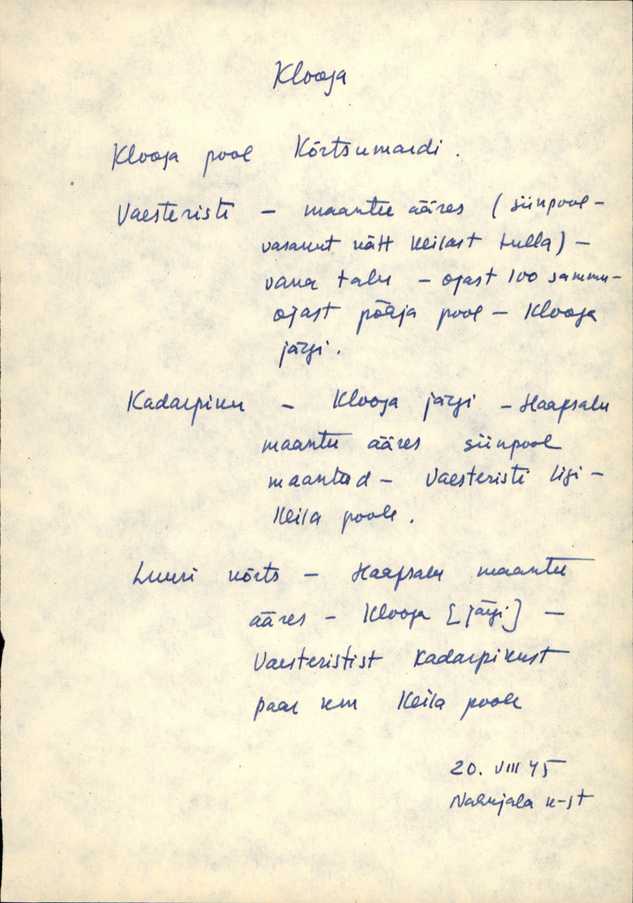 Klooga
Klooga pool Kõrtsumardi.
Vaesteristi – maantee ääres (siinpool –
vasakut kätt Keilast tulla) –
vana talu – ojast 100 sammu –
ojast põhja pool – Klooga
järgi.
Kadarpiku – Klooga järgi – Haapsalu
maantee ääres siinpool
maanteed – Vaesteristi ligi –
Keila poole.
Luuri kõrts – Haapsalu maantee
ääres – Klooga [järgi] –
Vaesteristist Kadarpikust
paar km Keila poole
20. VIII 45
k-st